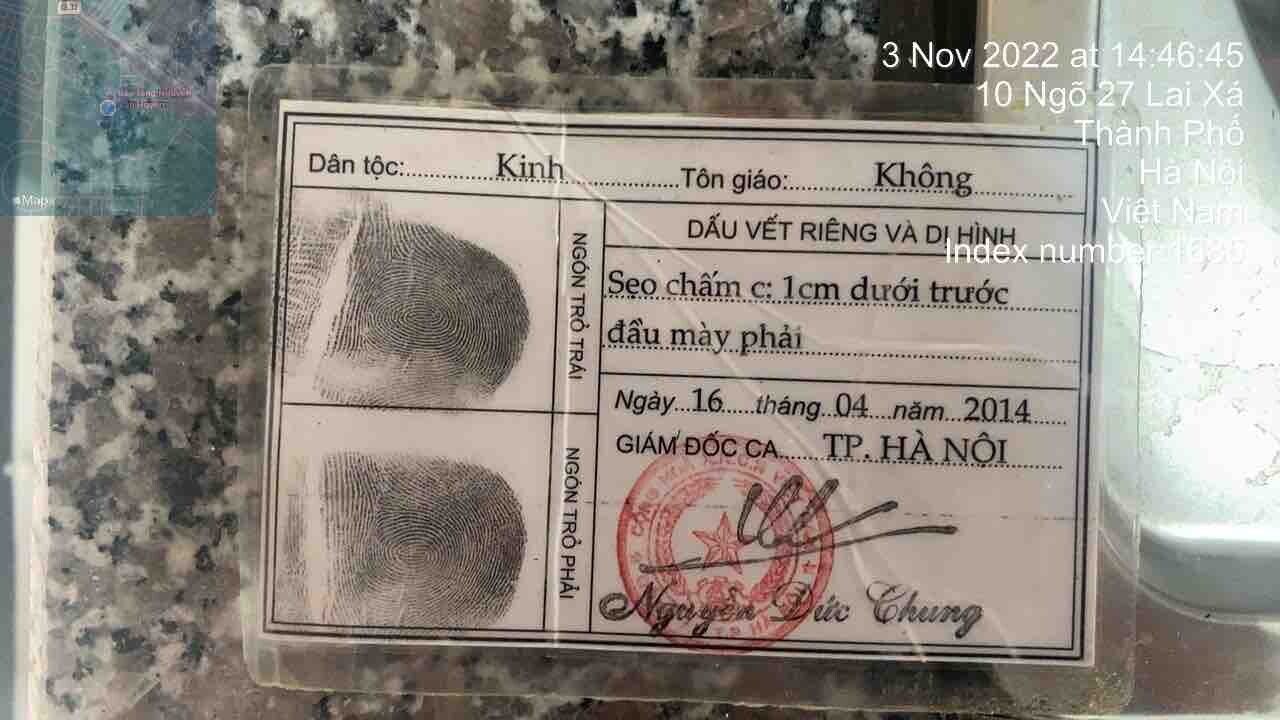 3 Nov 2022 at 14:46:45
10 Ngõ 27 Lai Xá
Thành Phố
Hà Nội
Việt Nam
Index number: 1685
Maps
Dân tộc: Kinh Tôn giáo: Không
NGÓN TRỎ TRÁI
NGÓN TRỎ PHẢI
DẤU VẾT RIÊNG VÀ DỊ HÌNH
Sẹo chấm c: 1cm dưới trước
đầu mày phải
Ngày 16 tháng 04 năm 2014
GIÁM ĐỐC CA TP. HÀ NỘI
Nguyễn Đức Chung